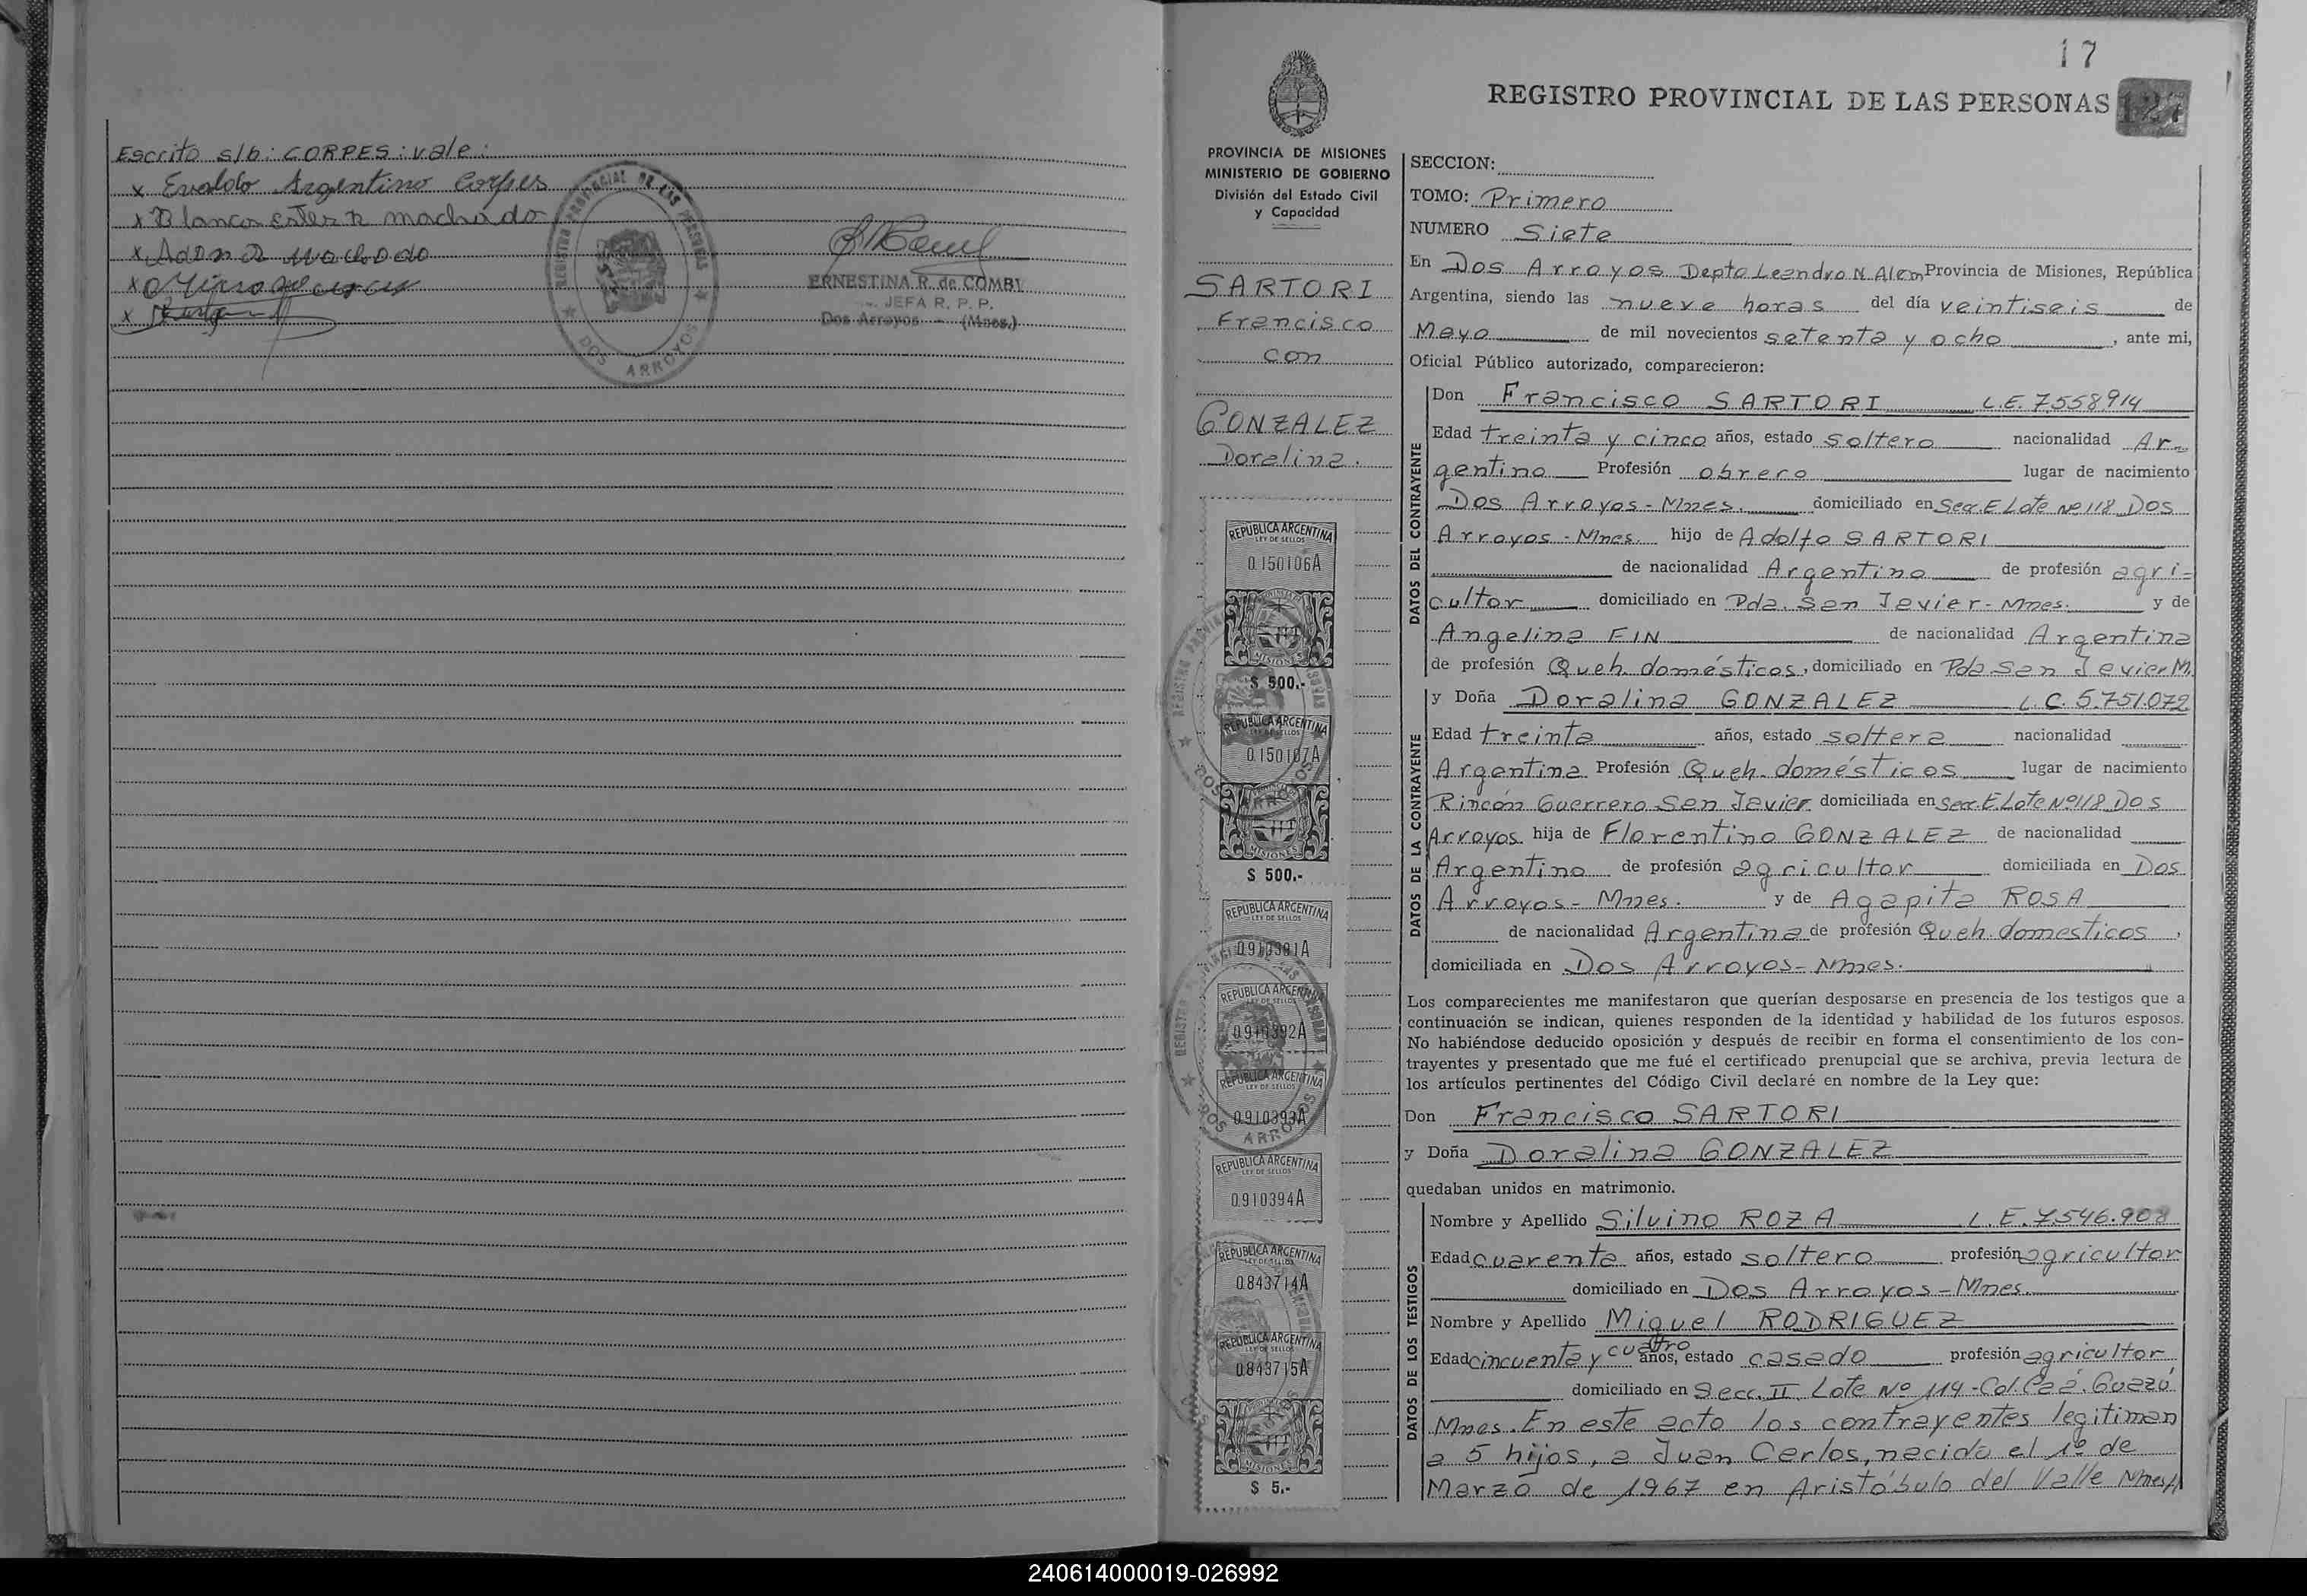 Escrito s/b: CORPES: vale:
x Evaldo Argentino Corpes
x Blanca Ester R machado
x Adona Machado
REGISTRO PROVINCIAL DE LAS PERSONAS
DOS ARROYOS
ERNESTINA R. de COMBI
JEFA R. P. P.
Dos Arroyos - (Mnes.)
17
REGISTRO PROVINCIAL DE LAS PERSONAS
127
PROVINCIA DE MISIONES
MINISTERIO DE GOBIERNO
División del Estado Civil
y Capacidad
SARTORI
Francisco
con
GONZALEZ
Doralina.
REPUBLICA ARGENTINA
LEY DE SELLOS
0.150106A
MISIONES
$ 500.-
REPUBLICA ARGENTINA
LEY DE SELLOS
0.150107A
MISIONES
$ 500.-
REPUBLICA ARGENTINA
LEY DE SELLOS
0.910391A
REPUBLICA ARGENTINA
LEY DE SELLOS
0.910392A
REPUBLICA ARGENTINA
LEY DE SELLOS
0.910393A
REPUBLICA ARGENTINA
LEY DE SELLOS
0.910394A
REPUBLICA ARGENTINA
LEY DE SELLOS
0.843714A
REPUBLICA ARGENTINA
LEY DE SELLOS
0.843715A
MISIONES
$ 5.-
SECCION:
TOMO: Primero
NUMERO Siete
En Dos Arroyos Depto Leandro N. Alem, Provincia de Misiones, República
Argentina, siendo las nueve horas del día veintiseis de
Mayo de mil novecientos setenta y ocho, ante mi,
Oficial Público autorizado, comparecieron:
DATOS DEL CONTRAYENTE
Don Francisco SARTORI L.E. 7.558914
Edad treinta y cinco años, estado soltero nacionalidad Ar-
gentino Profesión obrero lugar de nacimiento
Dos Arroyos - Mnes. domiciliado en Secc. E Lote Nº 118 Dos
Arroyos - Mnes. hijo de Adolfo SARTORI
de nacionalidad Argentino de profesión agri-
cultor domiciliado en Pda. San Javier - Mnes. y de
Angelina FIN de nacionalidad Argentina
de profesión Queh. domésticos, domiciliado en Pda San Javier M.
DATOS DE LA CONTRAYENTE
y Doña Doralina GONZALEZ L.C. 5.751.072
Edad treinta años, estado soltera nacionalidad
Argentina Profesión Queh. domésticos lugar de nacimiento
Rincón Guerrero San Javier domiciliada en Secc. E Lote Nº 118 Dos
Arroyos hija de Florentino GONZALEZ de nacionalidad
Argentino de profesión agricultor domiciliada en Dos
Arroyos - Mnes. y de Agapita ROSA
de nacionalidad Argentina de profesión Queh. domesticos,
domiciliada en Dos Arroyos - Mnes.
Los comparecientes me manifestaron que querían desposarse en presencia de los testigos que a
continuación se indican, quienes responden de la identidad y habilidad de los futuros esposos.
No habiéndose deducido oposición y después de recibir en forma el consentimiento de los con-
trayentes y presentado que me fué el certificado prenupcial que se archiva, previa lectura de
los artículos pertinentes del Código Civil declaré en nombre de la Ley que:
Don Francisco SARTORI
y Doña Doralina GONZALEZ
quedaban unidos en matrimonio.
DATOS DE LOS TESTIGOS
Nombre y Apellido Silvino ROZA L.E. 7.546.908
Edad cuarenta años, estado soltero profesión agricultor
domiciliado en Dos Arroyos - Mnes.
Nombre y Apellido Miguel RODRIGUEZ
Edad cincuenta y cuatro años, estado casado profesión agricultor
domiciliado en Secc. II Lote Nº 114 - Col. Caá. Guazú
Mnes. En este acto los contrayentes legitiman
a 5 hijos, a Juan Carlos, nacido el 1º de
Marzo de 1967 en Aristóbulo del Valle Mnes//
240614000019-026992